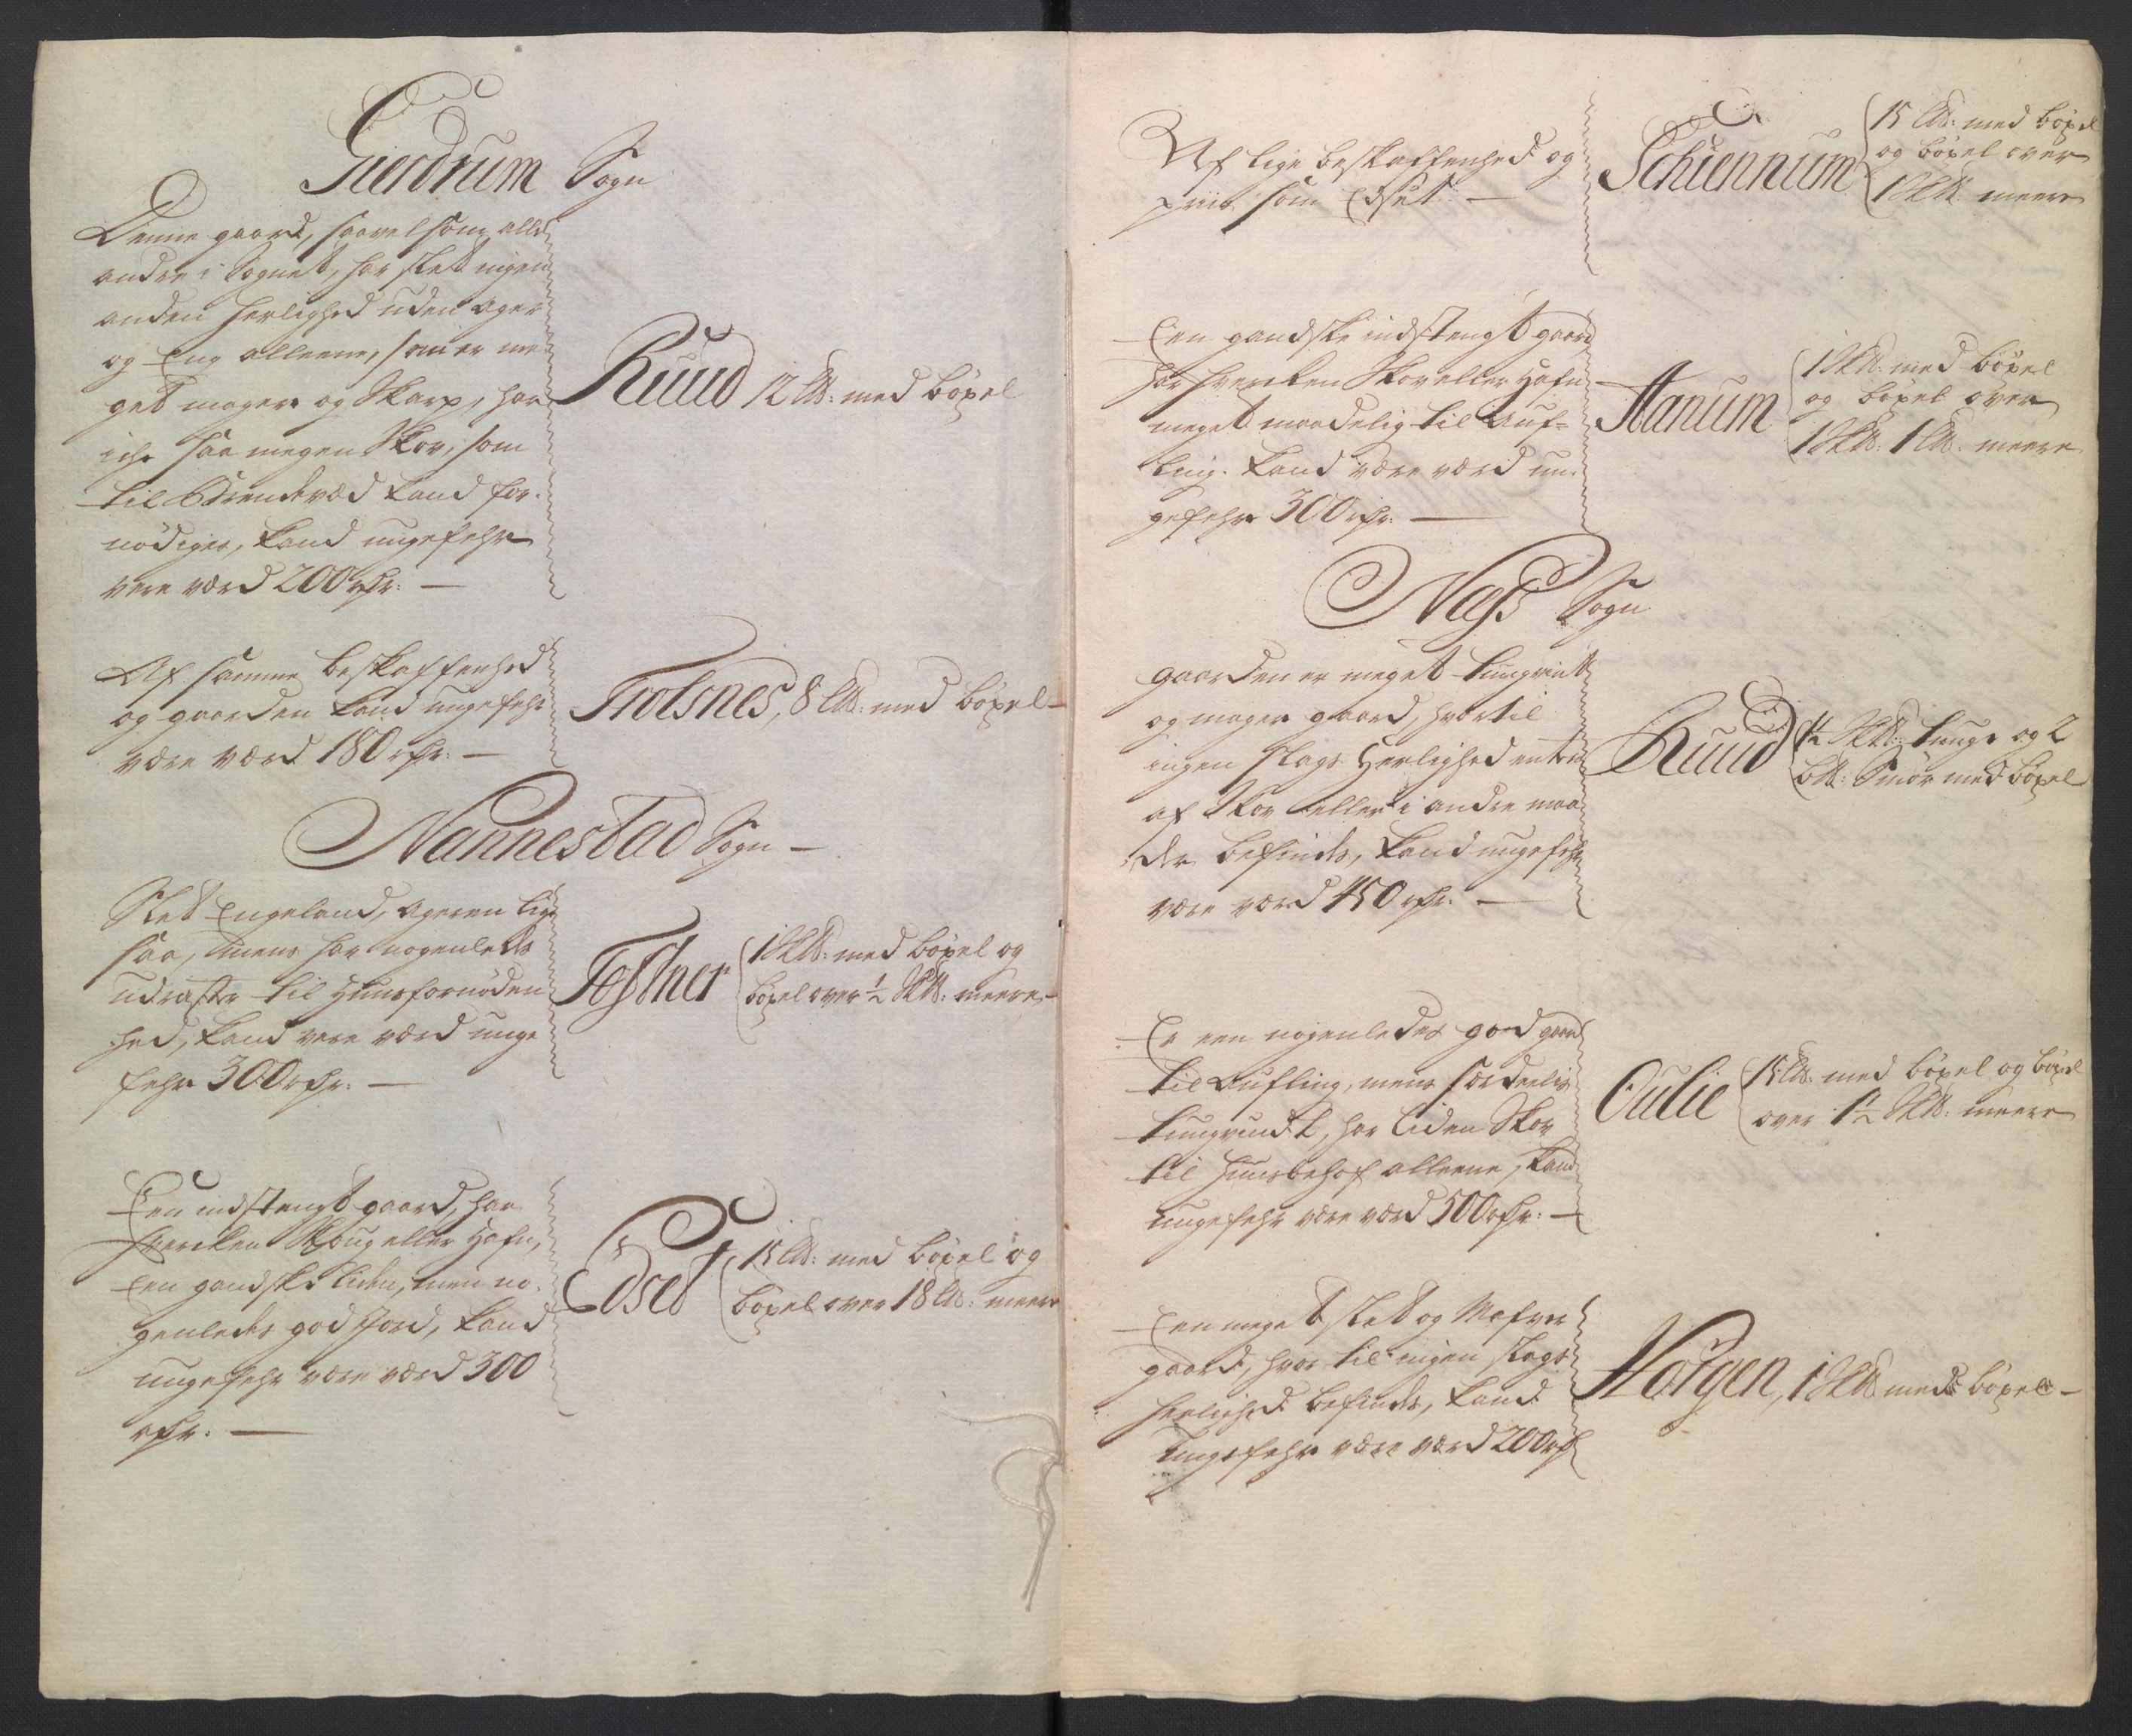 Gierdrum Sogn
Denne gaard, saavelsom alle
andre i Sognet, har slet ingen
anden herlighed uden ager
og Eng alleene, som er me¬
get mager og Skarp, har
iche saa megen Skov, som
til Brendeved kand for¬
nødiges, kand ungefehr
vere værd 200 rdr: —
Ruud 12 lb: med böxel
Af samme beskaffenhed
og gaarden kand ungefehr
være værd 180 rdr: —
Trolsnes, 8 lb: med böxel —
Nannestad Sogn —
Slet Engeland, Ageren lige
saa, mens har nogenledes
udraster til Huusfornøden
hed, kand vere værd unge
fehr 300 rdr: —
Tostner
1 Skb: med böxel og
böxel over ½ Skb: meere —
Een indstengt gaard, har
hvercken Skoug eller Hafn,
Een gandske liden, men no¬
genledes god Jord, kand
ungefehr være værd 300
rdr. —
Edset
15 lb: med böxel og
böxel over 18 lb: meere
Af lige beskaffenhed og
priis som Edset: —
Schiennum
15 lb: med böxel
og böxel over
1 Skb: meere
Een gandske indstengt gaard
har hvercken Skov eller Hafn
meget maadelig til Auf¬
ling. Kand være værd un¬
gefehr 300 rdr: —
Aanum
1 Skb: med böxel
og böxel over
1 Skb: 1 lb: meere
Næss Sogn
gaarden er meget tungvint
og mager gaard, hvortil
ingen slags Herlighed enten
af Skov eller i andre maa
der befindes, kand ungefehr
være værd 450 rdr. —
Ruud
½ Skb: tunge og 2
bb: Smör med böxel
Er een nogenledes god gaard
til aufling, mens særdeelis
tungvindt, har liden Skov
til huusbehof alleene, kand
ungefehr være værd 500 rdr: —
Oulie
15 lb: med böxel og böxel
over 1½ Skb: meere
Een meget slet og
gaard, hvor til ingen slags
herlighed befindes, kand
ungefehr være værd 200 rd
Horgen, 1 Skb med böxel —